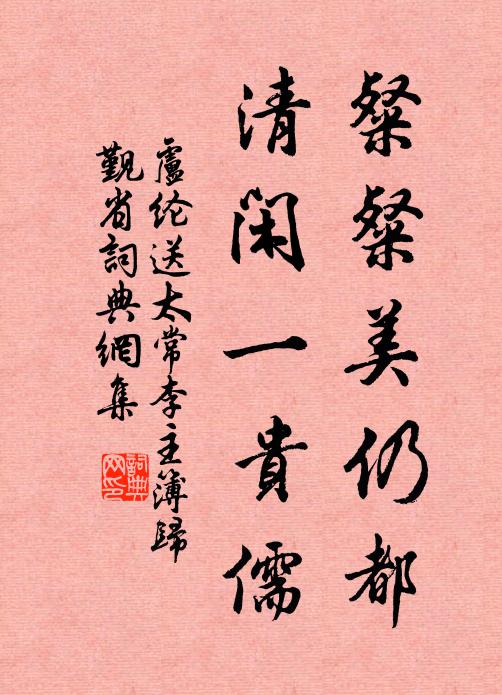 粲粲美仍都
清閑一貴儒
盧纶送太常李主簿歸
觐省詞典網集
詞典
网印